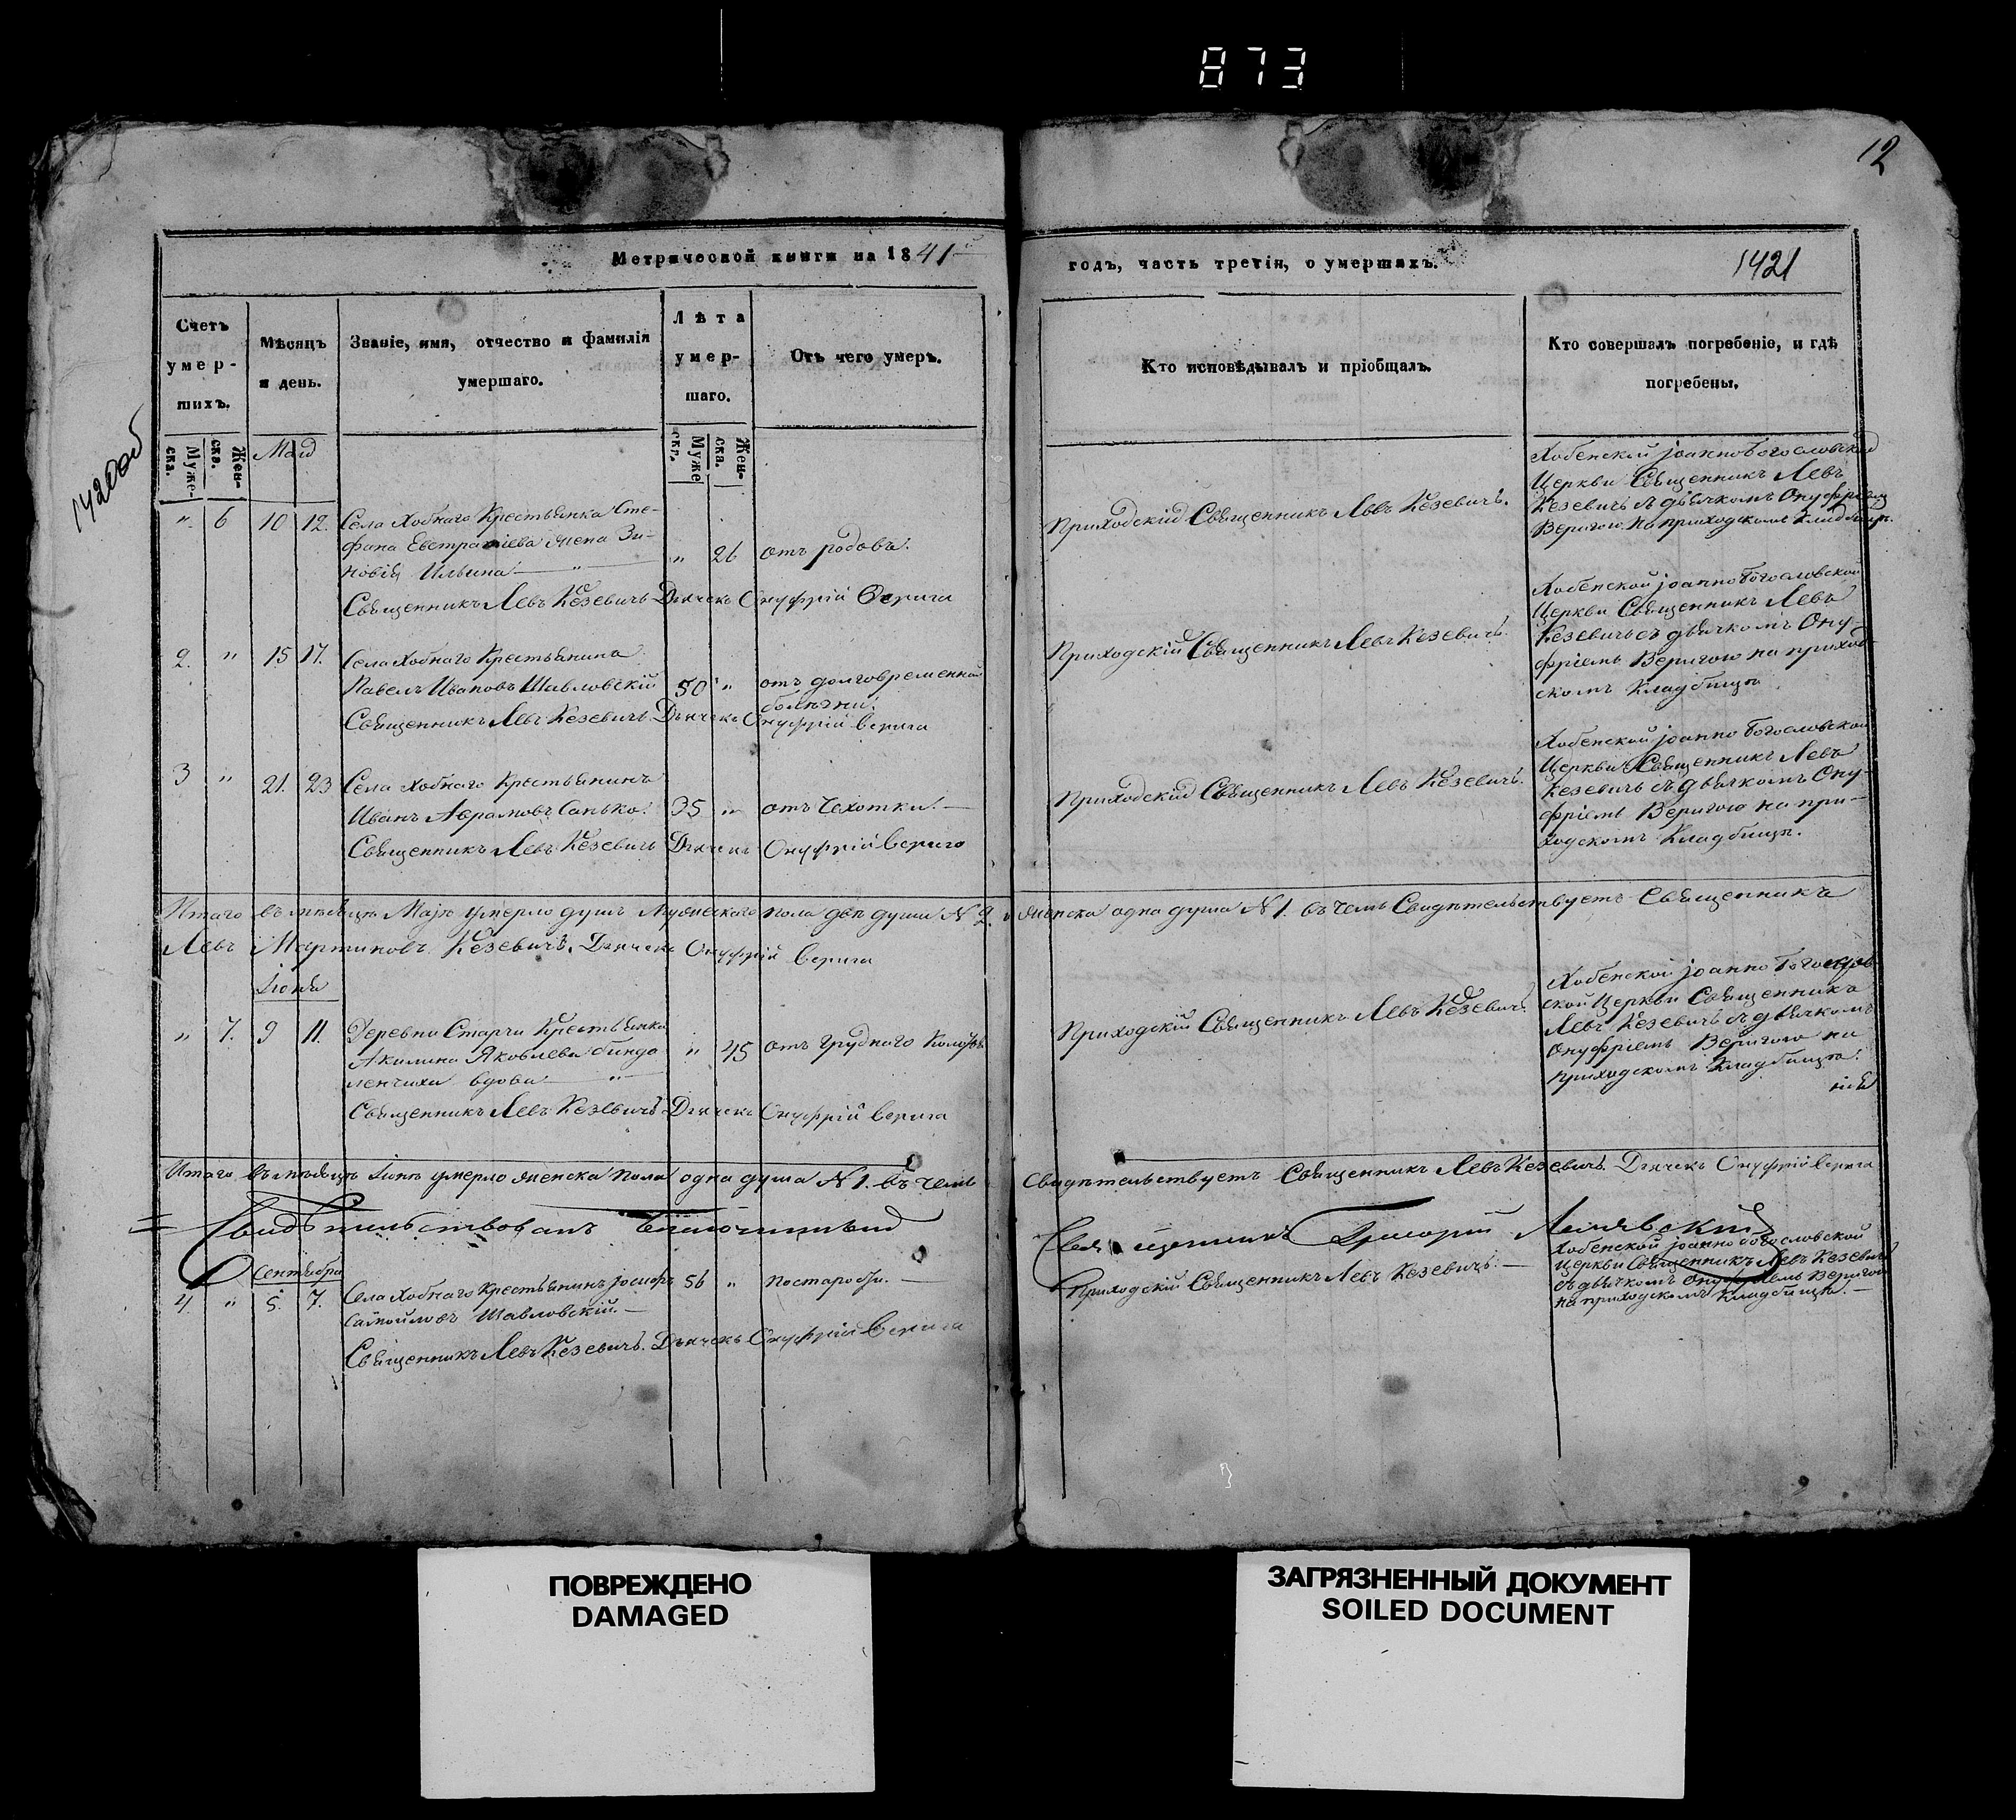 873
12
Метрической книги на 1841
годъ, часть третія, о умершихъ.
1421
1420об
Счетъ умер-шихъ.
Муже-ска.
Жен-ска.
Мѣсяцъ и день.
Званіе, имя, отчество и фамилія умершаго.
Лѣта умер-шаго.
Муже ска.
Жен-ска.
Отъ чего умеръ.
Кто исповѣдывалъ и пріобщалъ.
Кто совершалъ погребеніе, и гдѣ погребены.
Май
" 6 10 12. Села Хобнаго Крестьянка Сте-
фана Евстрафіева жена Зи-
новія Ильина " 26 отъ родовъ.
Священникъ Левъ Кезевичъ Дьячекъ Онуфрій Верига
Приходскій Священникъ Левъ Кезевичъ.
Хобенской Іоанно Богословской
Церкви Священникъ Левъ
Кезевичъ съ дьячкомъ Онуфріемъ
Веригою на приходскомъ кладбищѣ.
2. " 15 17. Села Хобнаго Крестьянинъ
Павелъ Ивановъ Шавловскій 50 " отъ долговременной
болѣзни.
Священникъ Левъ Кезевичъ Дьячекъ Онуфрій Верига
Приходскій Священникъ Левъ Кезевичъ.
Хобенской Іоанно Богословской
Церкви Священникъ Левъ
Кезевичъ съ дьячкомъ Ону-
фріемъ Веригою на приход-
скомъ кладбищѣ
3 " 21. 23 Села Хобнаго Крестьянинъ
Иванъ Аврамовъ Санько. 35 " отъ Чехотки.
Священникъ Левъ Кезевичъ Дьячекъ Онуфрій Верига
Приходскій Священникъ Левъ Кезевичъ.
Хобенской Іоанно Богословской
Церкви Священникъ Левъ
Кезевичъ съ дьячкомъ Ону-
фріемъ Веригою на при-
ходскомъ Кладбищѣ.
Итаго въ мѣсяцѣ Маіѣ умерло душъ мужескаго пола двѣ души N 2. и женска одна душа N 1. въ чемъ Свидѣтельствуетъ Священникъ
Левъ Мартиновъ Кезевичъ. Дьячекъ Онуфрій Верига
Іюня
" 7. 9 11. Деревни Старчи Крестьянка
Акилина Яковлева
вдова " 45 отъ грудного
Священникъ Левъ Кезевичъ Дьячекъ Онуфрій Верига
Приходскій Священникъ Левъ Кезевичъ
Хобенской Іоанно Богослов-
ской Церкви Священникъ
Левъ Кезевичъ съ дьячкомъ
Онуфріемъ Веригою на
приходскомъ Кладбищѣ.
Итаго въ мѣсяцѣ Іюнѣ умерло женска пола одна душа N 1. въ чемъ Свидѣтельствуетъ Священникъ Левъ Кезевичъ. Дьячекъ Онуфрій Верига
Свидѣтельствовалъ Благочинный Священникъ Григорій
Сентября
4. " 5. 7. Села Хобнаго Крестьянинъ Іосифъ 56 "
Самойловъ Шавловскій.
Священникъ Левъ Кезевичъ. Дьячекъ Онуфрій Верига
Приходскій Священникъ Левъ Кезевичъ.
Хобенской Іоанно Богословской
Церкви Священникъ Левъ Кезевичъ
съ дьячкомъ Онуфріемъ Веригою
на приходскомъ Кладбищѣ.
ПОВРЕЖДЕНО
DAMAGED
ЗАГРЯЗНЕННЫЙ ДОКУМЕНТ
SOILED DOCUMENT